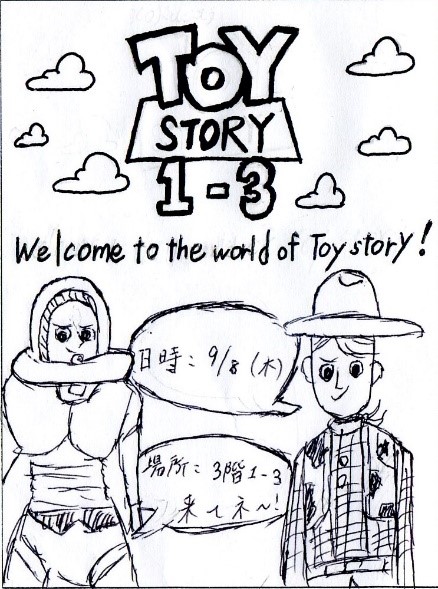 TOY
STORY
1-3
Welcome to the world of Toy story!
日時：9/8（木）
場所：3階1-3
来てネ～！